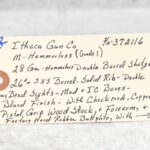 Ithaca Gun Co #a-372116
M- Hammerless (Grade 1)
28 Ga- Hammerless Double Barrel Shotgun
26" SXS Barrel- Solid Rib- Double
Bead Sights- Mod + IC Bores-
Blued Finish- With Checkered, Capped
Pistol Grip Wood Stock + Forearm, +
Factory Hard Rubber Buttplate, With